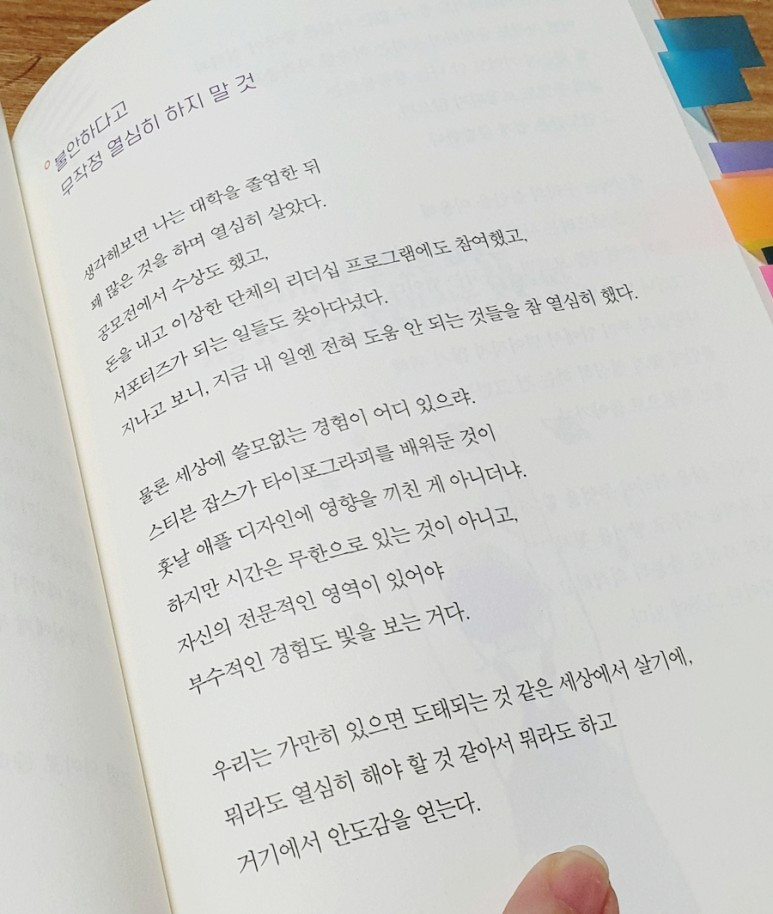 불안하다고
무작정 열심히 하지 말 것
생각해보면 나는 대학을 졸업한 뒤
꽤 많은 것을 하며 열심히 살았다.
공모전에서 수상도 했고,
돈을 내고 이상한 단체의 리더십 프로그램에도 참여했고,
서포터즈가 되는 일들도 찾아다녔다.
지나고 보니, 지금 내 일엔 전혀 도움 안 되는 것들을 참 열심히 했다.
물론 세상에 쓸모없는 경험이 어디 있으랴.
스티븐 잡스가 타이포그라피를 배워둔 것이
훗날 애플 디자인에 영향을 끼친 게 아니더냐.
하지만 시간은 무한으로 있는 것이 아니고,
자신의 전문적인 영역이 있어야
부수적인 경험도 빛을 보는 거다.
우리는 가만히 있으면 도태되는 것 같은 세상에서 살기에,
뭐라도 열심히 해야 할 것 같아서 뭐라도 하고
거기에서 안도감을 얻는다.